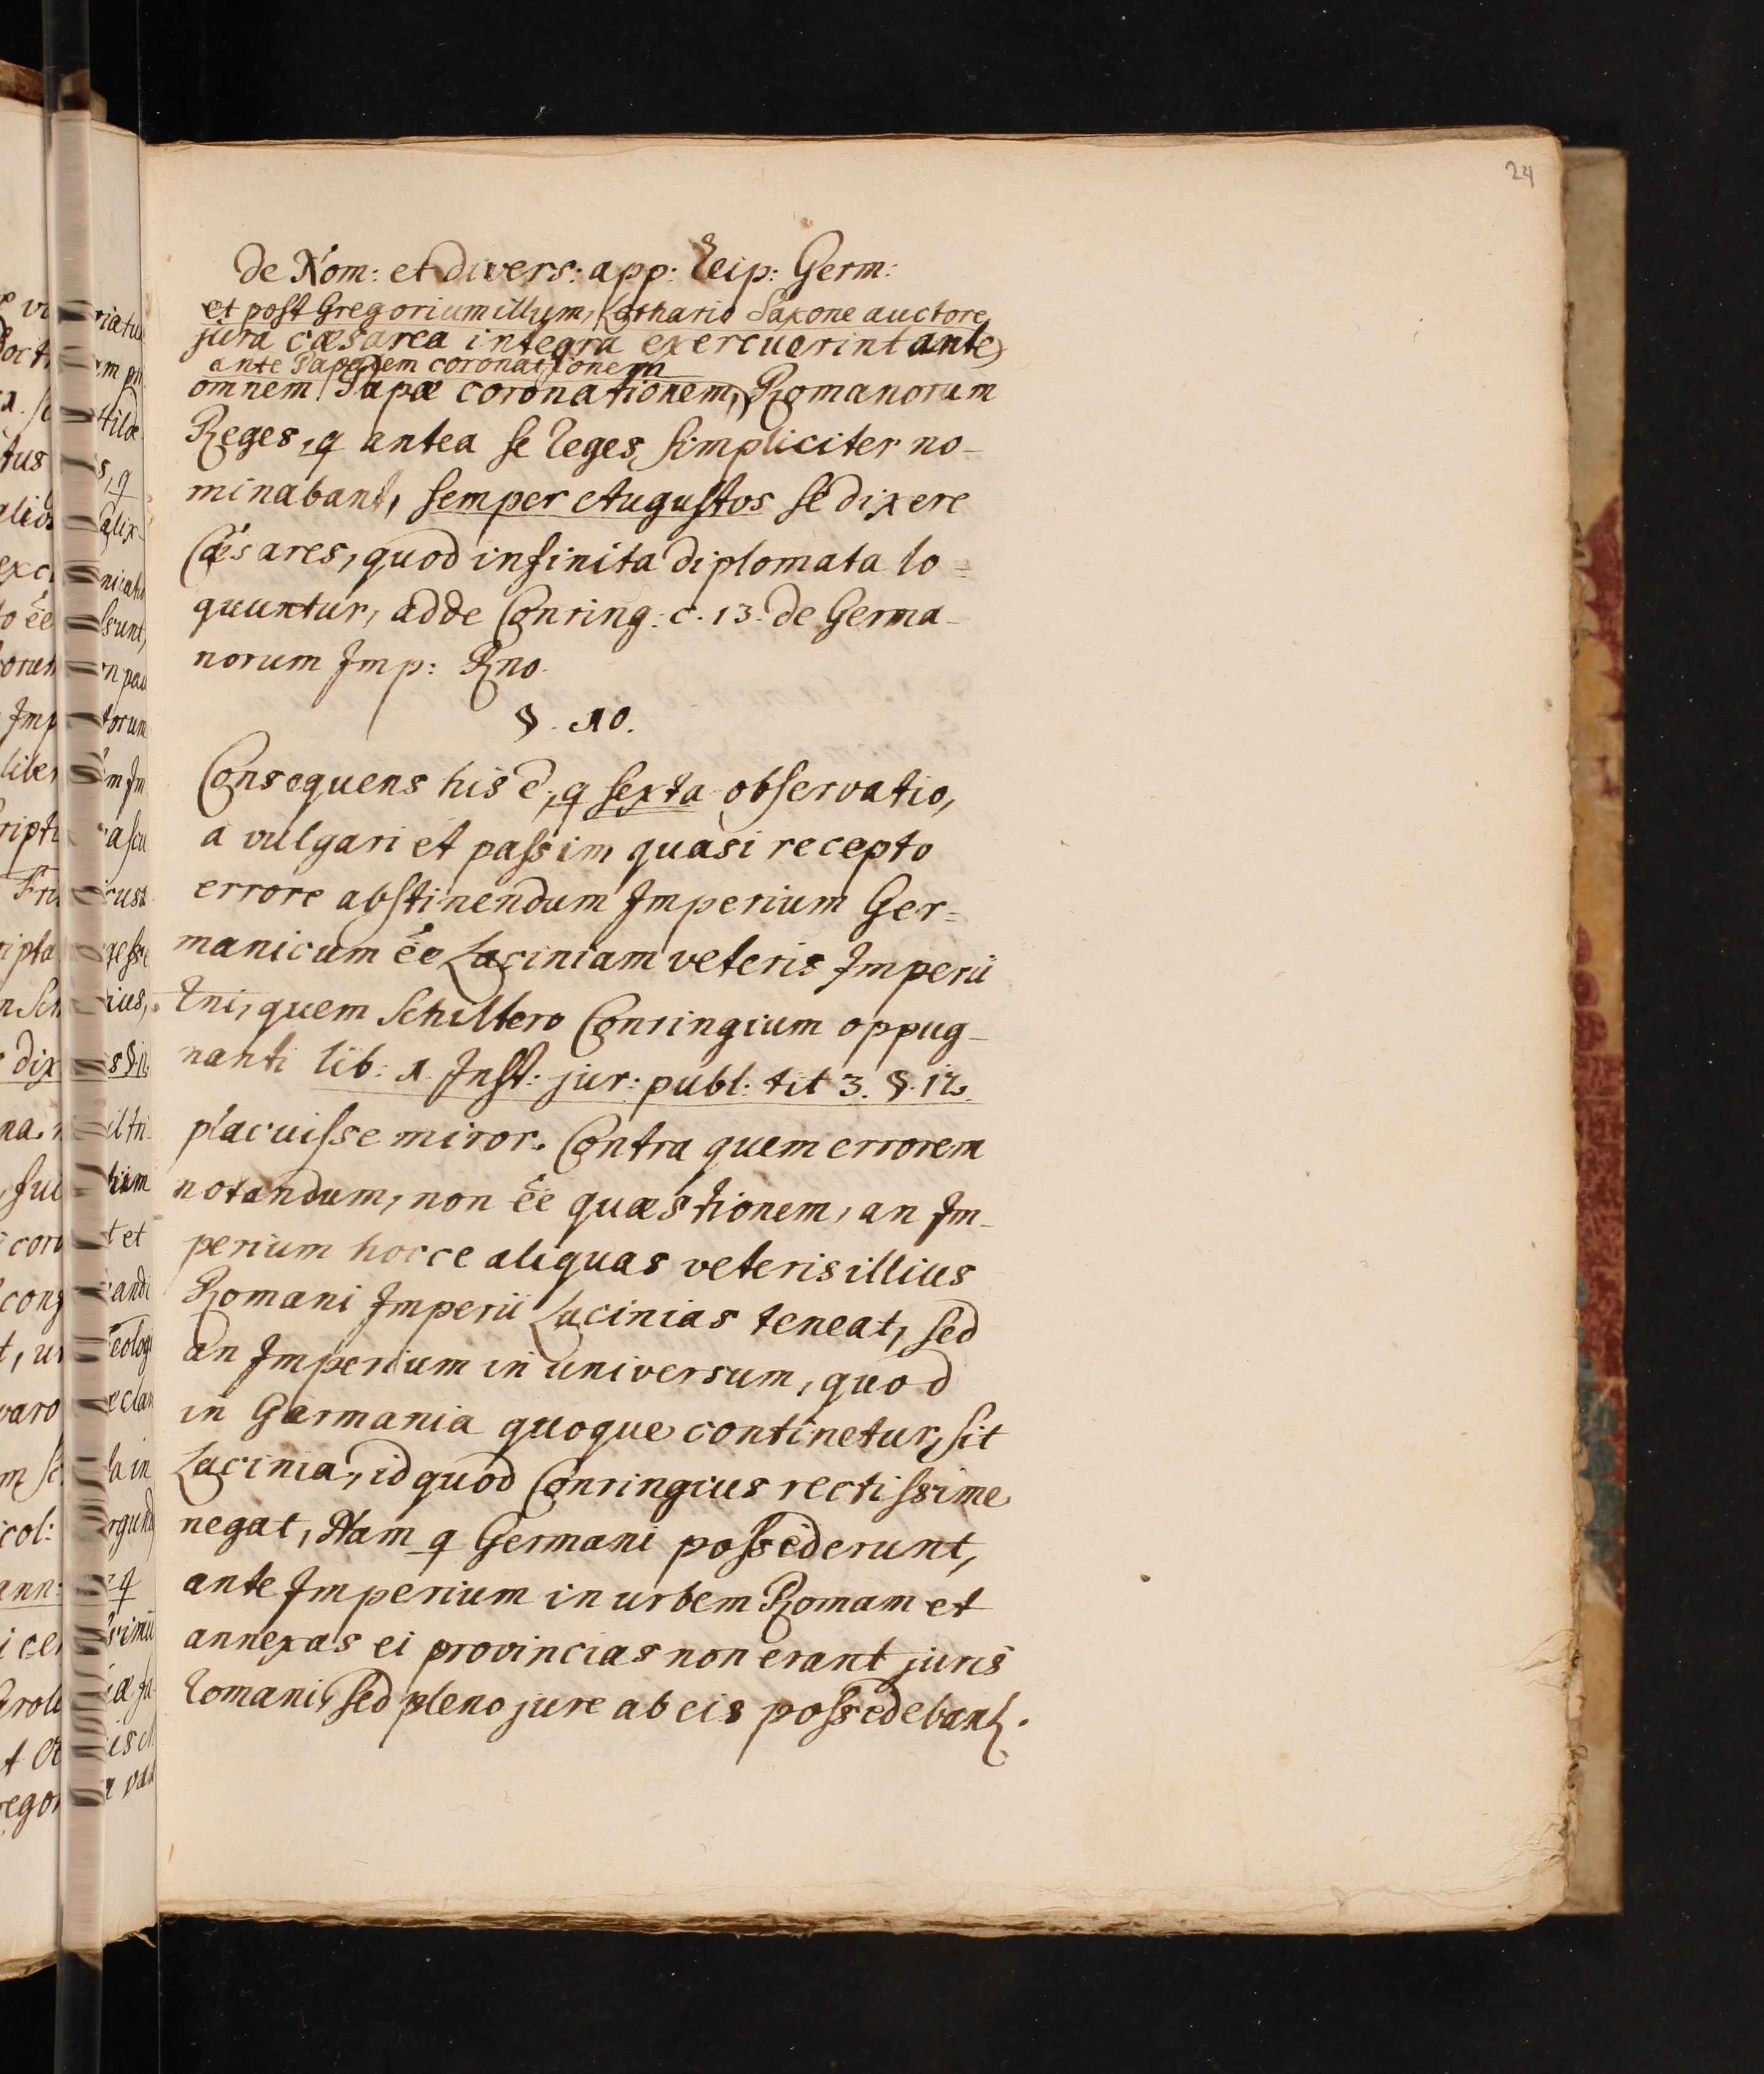 24
de Nom: et divers: app: Reip: Germ:
et post Gregorium illum, Lothario Saxone auctore
jura cæsarea integra exercuerint ante
ante Papalem coronationem
omnem Papæ coronationem, Romanorum
Reges, q antea se Reges simpliciter no-
minabant, semper Augustos se dixere
Cæsares, quod infinita diplomata lo=
quuntur, adde Conring: c. 13. de Germa-
norum Imp: Rno.
§. 10.
Consequens his e, q sexta observatio,
a vulgari et passim quasi recepto
errore abstinendum Imperium Ger=
manicum ee Laciniam veteris Imperii
Rni, quem Schiltero Conringium oppug-
nanti lib: 1. Inst: jur: publ: tit 3. §. 12.
placuisse miror. Contra quem errorem
notandum, non ee quæstionem, an Im-
perium hocce aliquas veteris illius
Romani Imperii Lacinias teneat, sed
an Imperium in universum, quod
in Germania quoque continetur, sit
Lacinia, id quod Conringius rectissime
negat, Nam q Germani possederunt,
ante Imperium in urbem Romam et
annexas ei provincias non erant juris
Romani, sed pleno jure ab eis possedebant.